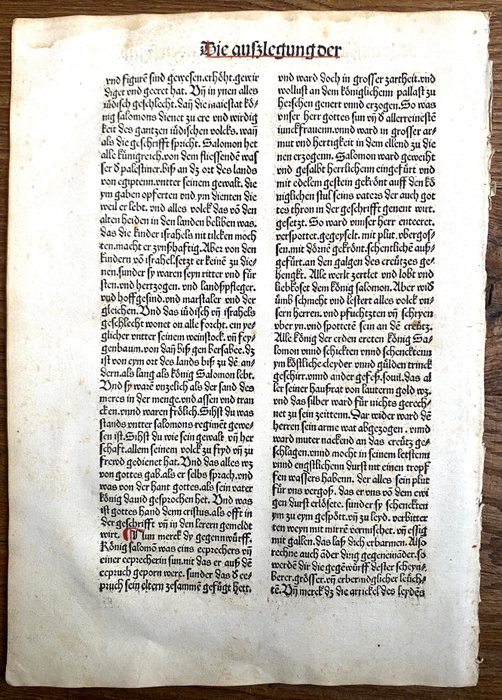 Die auſzlegung der
vnd figurē ſind geweſen.erhöht.gewir
diget vnd geeret hat. Vñ in ynen alles
iüdiſch geſchlecht. Daʒ die maieſtat kö⸗
nig ſalomons dienet zu ere vnd wirdig
keit des gantzen iüdiſchen volcks. wañ
als die geſchrifft ſpricht. Salomon het
alle künigreich.von dem flieſſendē waſ
ſer ð paleſtiner.biſz an dʒ ort des lands
von egiptenn.vntter ſeinem gewalt. die
ym gaben opfferten vnd ym dienten die
weil er lebt. vnd alles volck dʒ vō den
alten heiden in den landen beliben was.
das die kinder iſrahels nit tilcken moch
ten.macht er zynſzhafftig. Aber von den
kindern vō iſrahel.ſetzt er keinē zu die⸗
nen.ſunder ſy waren ſeyn ritter vnd für
ſten.vnd hertzogen. vnd landſpfleger.
vnd hoffgeſind.vnd marſtaler vnd der
gleichen. Vnd das iüdiſch vñ iſrahels
geſchlecht wonet on alle forcht. ein yeg
glicher vntter ſeinem weinſtock. vñ fey⸗
genbaum.von dañ biſz gen berſabee. dʒ
iſt von eym ort des lands biſz zu dē an⸗
dern.als lang als könig Salomon lebt.
Vnd ſy warē vnzelich als der ſand des
meres in der menge.vnd aſſen vnd tran
cken.vnnd waren frölich. Sihſt du was
ſtands vntter ſalomons regimēt gewe⸗
ſen iſt.Sihſt du wie ſein gewalt vñ her
ſchafft.allem ſeinem volck zu fryd vñ zu
frewd gedienet hat. Vnd das alles wʒ
von gottes gab.als er ſelbs ſprach.vnd
was von der hant gottes.als ſein vater
könig dauid geſprochen het. Vnd was
iſt gottes hand dem criſtus.als offt in
der geſchrifft vñ in den lerern gemeldt
wirt. Nun merck dy gegennwürff.
König ſalomo was eins eeprechers vñ
einer eeprecherin ſun.nit das er auſz dē
eepruch geporn were. ſunder das ð ee⸗
pruch ſein eltern zeſamme gefügt hett.
vnd ward doch in groſſer zartheit.vnd
wolluſt an dem königlichenn pallaſt zu
herſchen genert vnnd erzogen. So was
vnſer herr gottes ſun vō ð allerreineſtē
iunckfrauenn.vnnd ward in groſſer ar⸗
mut vnd hertigkeit in dem ellend zu die
nen erzogenn. Salomon ward geweiht
vnd geſalbt herrlichenn eingefürt vnd
mit edelem geſtein gekrönt auff den kö
niglichen ſtul ſeins vaters der auch got
tes thron in der geſchrifft genent wirt.
geſetzt. So ward vnſer herr enteeret.
verſpottet.gegeyſelt. mit plut vbergoſ⸗
ſen.mit dörnē gekrönt.ſchentlichē auſz⸗
gefürt.an den galgen des creützes ge⸗
hengkt. Alle werlt zertlet vnd lobt vnd
liebkoſet dem könig ſalomon. Aber wid
ūmb ſchmeht vnd leſtert alles volck vn⸗
ſern herren. vnd pfüchtzten vñ ſchryen
vber yn.vnd ſpottetē ſein an dē creütz.
Alle könig der erden ereten könig Sa⸗
lomon vnnd ſchickten vnnd ſchenckten
ym köſtlich cleyder vnnd gülden trinck
geſchirr.vnnd ander gefeſz.ſouil.das al
ler ſeiner hauſzrat von lauterm gold wʒ.
vnd das ſilber ward für nichts gerech⸗
net zu ſein zeittenn. Dar wider ward dē
herren ſein arme wat abgezogen . vnnd
ward muter nackend an das creütz ge⸗
ſchlagen.vnnd mocht in ſeinem letſtenn
vnnd engſtlichenn durſt mit einen tropf
fen waſſers habenn. der alles ſein plut
für vns vergoſz. das er vns vō dem ewi
gen durſt erlöſet. ſunder ſy ſchenckten
ym zu eym geſpött.vñ zu leyd. verbitter
ten weyn mit mirre vermiſchet.vñ eſſig
mit gallen.das laſz dich erbarmen. Alſo
rechne auch ād̕er ding gegeneināder.ſo
werdē dir die gegēwürff deſter ſcheyn⸗
berer.gröſſer.vñ erbermdglicher leüch⸗
tē. Vñ merck dʒ die artickel des leydēs